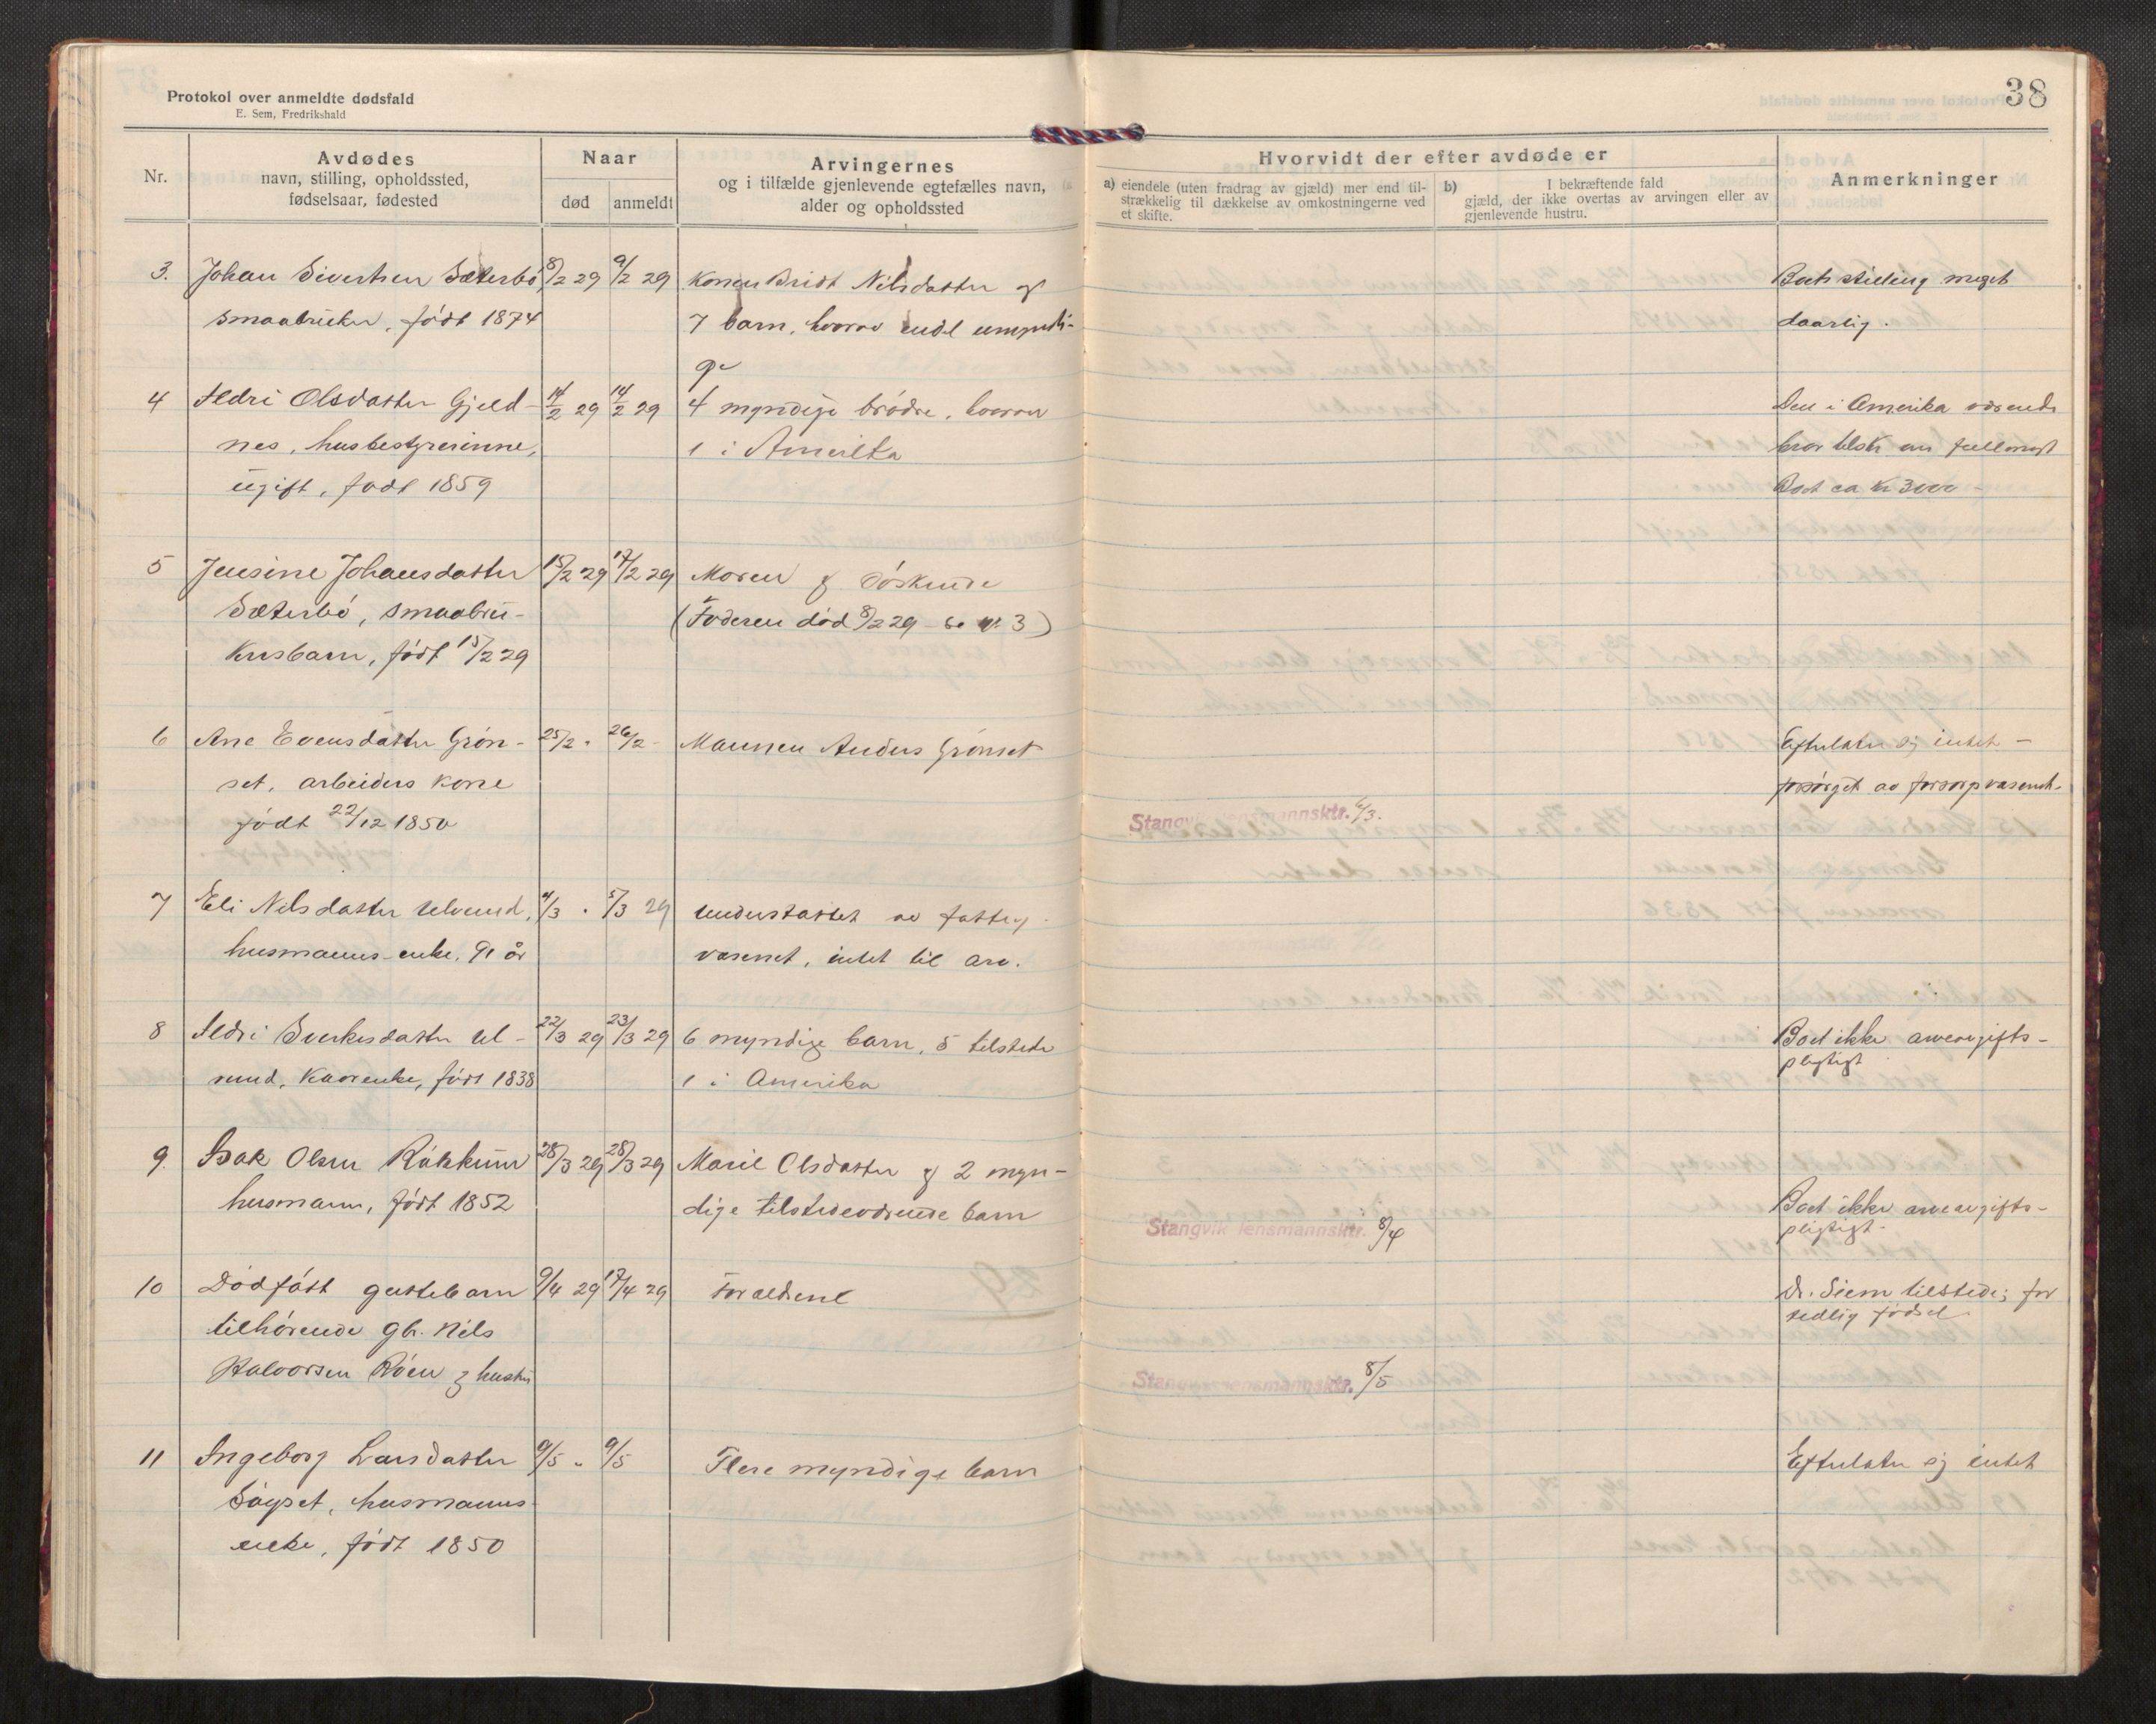 Protokol over anmeldte dødsfald
E. Sem, Fredrikshald
38
Nr.
Avdødes
navn, stilling, opholdssted,
fødselsaar, fødested
Naar
død
anmeldt
Arvingernes
og i tilfælde gjenlevende egtefælles navn,
alder og opholdssted
Hvorvidt der efter avdøde er
a) eiendele (uten fradrag av gjæld) mer end til-
strækkelig til dækkelse av omkostningerne ved
et skifte.
b) I bekræftende fald
gjæld, der ikke overtas av arvingen eller av
gjenlevende hustru.
Anmerkninger
3. Johan Sivertsen Sæterbø, 8/2 29 9/2 29 Konen Bridt Nilsdatter og Boets stilling meget
smaabruker, født 1874 7 barn, hvorav endel umyndi- daarlig.
ge
4 Ildri Olsdatter Gjeld- 14/2 29 14/2 29 4 myndige brødre, hvorav Den i Amerika værende
nes, husbestyrerinne, 1 i Amerika bror tilsk. om fullmagt
ugift, født 1859 Boet ca kr 3000 -
5 Jensine Johansdatter 15/2 29 17/2 29 Moren og søskende
Sæterbø, smaabru- (Faderen død 8/2 29 se nr. 3)
kersbarn, født 15/2 29
6 Ane Evensdatter Grøn- 25/2 " 26/2 - Mannen Anders Grønset Efterlater sig intet -
set, arbeiders kone forsørget av forsorgsvæsenet.
født 22/12 1850 Stangvik lensmannsktr. 6/3.
7 Eli Nilsdatter Ulvund, 4/3 " 5/3 29 understøttet av fattig-
husmanns-enke, 91 år væsenet, intet til arv.
8 Ildri Sverkesdatter Ul- 22/3 29 23/3 29 6 myndige barn, 5 tilstede Boet ikke arveavgifts-
vund, kaarenke, født 1838 1 i Amerika pligtigt
9. Isak Olsen Røkkum 28/3 29 28/3 29 Marit Olsdatter og 2 myn-
husmann, født 1852 dige tilstedeværende barn Boet ikke arveavgifts-
Stangvik lensmannsktr. 8/4 pligtigt.
10 Dødfødt guttebarn 9/4 29 17/4 29 Forældrene Dr. Siem tilstede; for
tilhørende gbr. Nils tidlig fødsel
Halvorsen Røen og hustru Stangvik lensmannsktr. 8/5
11 Ingeborg Larsdatter 9/5 " 9/5 Flere myndige barn Efterlater sig intet
Søyset, husmanns-
enke, født 1850